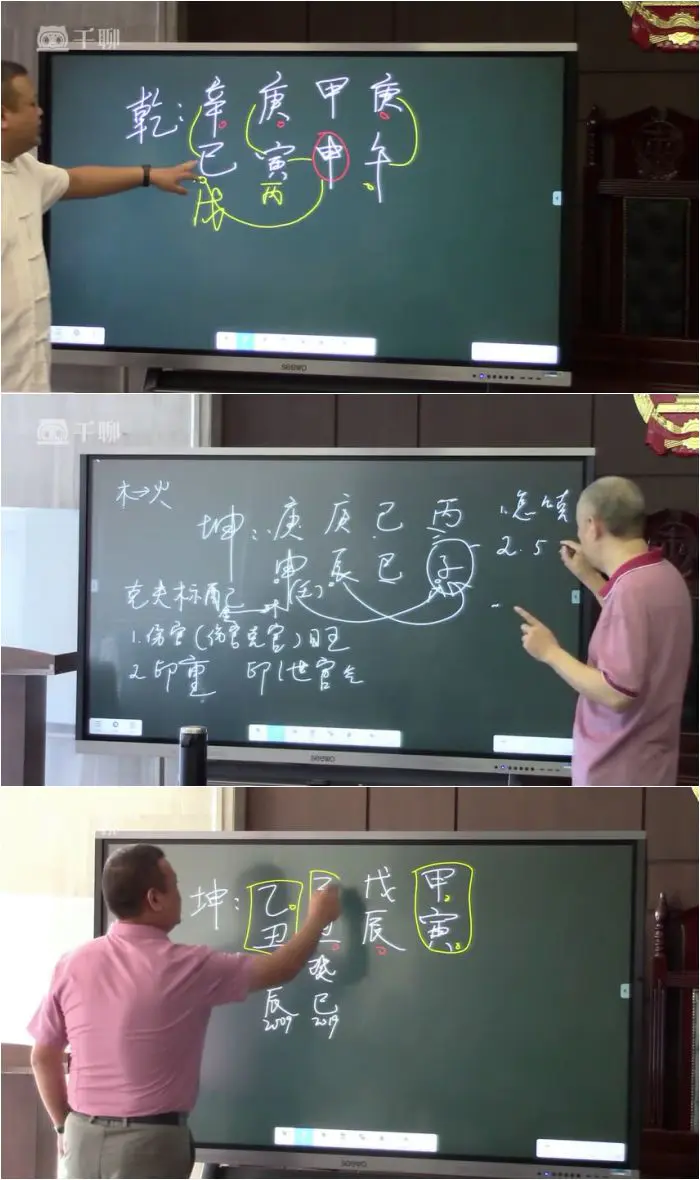 千聊
乾：辛 庚 甲 庚
巳 寅 申 午
戌 丙
seewo
千聊
木→火
坤：庚 庚 己 丙
申 辰 巳 子
1.怎
2.5
克夫标配
1.伤官（伤官克官）日王
2.印重 印泄官气
seewo
坤：乙 戊 甲
丑 丑 辰 寅
癸
辰 巳
2009 2019
seewo